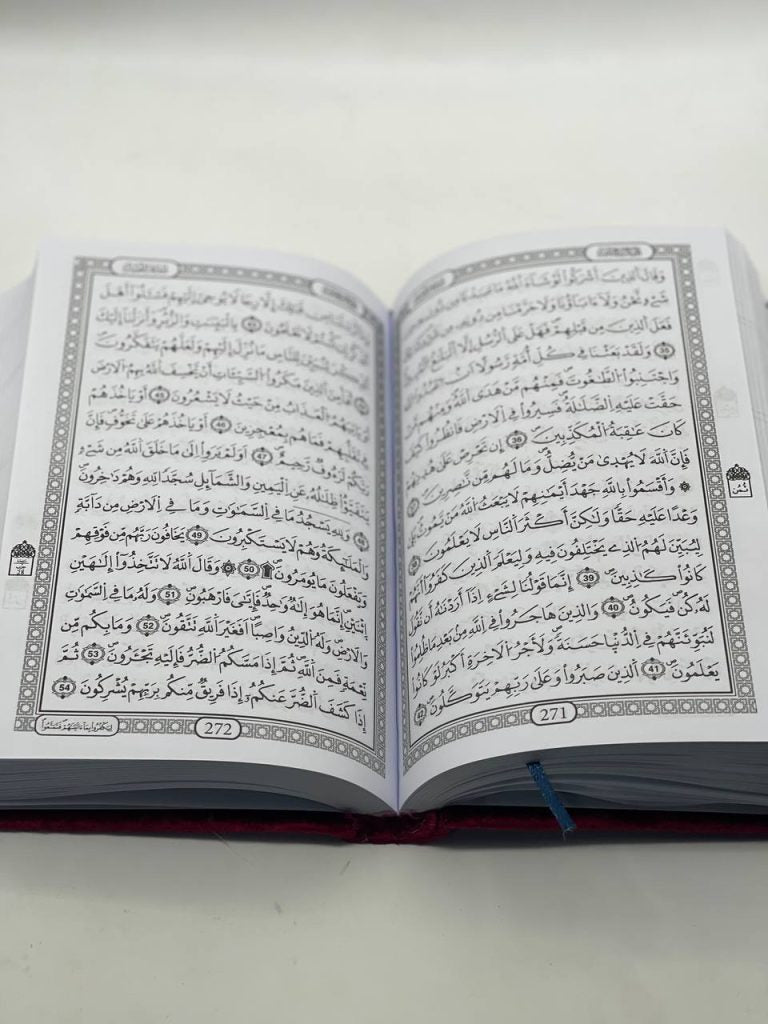 وَقَالَ اَ۬لذِينَ أَشْرَكُواْ لَوْ شَآءَ اَ۬للَّهُ مَا عَبَدْنَا مِن دُونِهِۦ مِن
شَےْءٍ نَّحْنُ وَلَآ ءَابَآؤُنَا وَلَا حَرَّمْنَا مِن دُونِهِۦ مِن شَےْءٍ كَذَٰلِكَ
فَعَلَ اَ۬لذِينَ مِن قَبْلِهِمْ فَهَلْ عَلَى اَ۬لرُّسُلِ إِلَّا اَ۬لْبَلَٰغُ اُ۬لْمُبِينُ
35 وَلَقَدْ بَعَثْنَا فِے كُلِّ أُمَّةٍ رَّسُولًا اَنُ اُ۟عْبُدُواْ اُ۬للَّهَ
وَاجْتَنِبُواْ اُ۬لطَّٰغُوتَ فَمِنْهُم مَّنْ هَدَى اَ۬للَّهُ وَمِنْهُم مَّنْ
حَقَّتْ عَلَيْهِ اِ۬لضَّلَٰلَةُ فَسِيرُواْ فِے اِ۬لَارْضِ فَانظُرُواْ كَيْفَ
كَانَ عَٰقِبَةُ اُ۬لْمُكَذِّبِينَ 36 إِن تَحْرِصْ عَلَىٰ هُدَىٰهُمْ
فَإِنَّ اَ۬للَّهَ لَا يُهْدَىٰ مَنْ يُّضِلُّ وَمَا لَهُم مِّن نَّٰصِرِينَ 37
۞ وَأَقْسَمُواْ بِاللَّهِ جَهْدَ أَيْمَٰنِهِمْ لَا يَبْعَثُ اُ۬للَّهُ مَنْ يَّمُوتُ بَلَىٰ
وَعْدًا عَلَيْهِ حَقًّا وَلَٰكِنَّ أَكْثَرَ اَ۬لنَّاسِ لَا يَعْلَمُونَ 38
لِيُبَيِّنَ لَهُمُ اُ۬لذِے يَخْتَلِفُونَ فِيهِ وَلِيَعْلَمَ اَ۬لذِينَ كَفَرُوٓاْ أَنَّهُمْ
كَانُواْ كَٰذِبِينَ 39 إِنَّمَا قَوْلُنَا لِشَےْءٍ اِذَآ أَرَدْنَٰهُ أَن نَّقُولَ
لَهُۥ كُن فَيَكُونُ 40 وَالذِينَ هَاجَرُواْ فِے اِ۬للَّهِ مِنۢ بَعْدِ مَا ظُلِمُواْ
لَنُبَوِّئَنَّهُمْ فِے اِ۬لدُّنْيَا حَسَنَةً وَلَأَجْرُ اُ۬لَاخِرَةِ أَكْبَرُ لَوْ كَانُواْ
يَعْلَمُونَ 41 اَ۬لذِينَ صَبَرُواْ وَعَلَىٰ رَبِّهِمْ يَتَوَكَّلُونَ 42
ثُمُن
271
وَمَآ أَرْسَلْنَا مِن قَبْلِكَ إِلَّا رِجَالًا يُوحَىٰٓ إِلَيْهِمْ فَسْـَٔلُوٓاْ أَهْلَ
اَ۬لذِّكْرِ إِن كُنتُمْ لَا تَعْلَمُونَ 43 بِالْبَيِّنَٰتِ وَالزُّبُرِ وَأَنزَلْنَآ إِلَيْكَ
اَ۬لذِّكْرَ لِتُبَيِّنَ لِلنَّاسِ مَا نُزِّلَ إِلَيْهِمْ وَلَعَلَّهُمْ يَتَفَكَّرُونَ
44 أَفَأَمِنَ اَ۬لذِينَ مَكَرُواْ اُ۬لسَّيِّـَٔاتِ أَنْ يَّخْسِفَ اَ۬للَّهُ بِهِمُ اُ۬لَارْضَ
أَوْ يَاتِيَهُمُ اُ۬لْعَذَابُ مِنْ حَيْثُ لَا يَشْعُرُونَ 45 أَوْ يَاخُذَهُمْ
فِے تَقَلُّبِهِمْ فَمَا هُم بِمُعْجِزِينَ 46 أَوْ يَاخُذَهُمْ عَلَىٰ تَخَوُّفٍ فَإِنَّ
رَبَّكُمْ لَرَءُوفٌ رَّحِيمٌ 47 اَوَلَمْ يَرَوِاْ اِلَىٰ مَا خَلَقَ اَ۬للَّهُ مِن شَےْءٍ
يَتَفَيَّؤُاْ ظِلَٰلُهُۥ عَنِ اِ۬لْيَمِينِ وَالشَّمَآئِلِ سُجَّدًا لِّلهِ وَهُمْ دَٰخِرُونَ
48 وَلِلهِ يَسْجُدُ مَا فِے اِ۬لسَّمَٰوَٰتِ وَمَا فِے اِ۬لَارْضِ مِن دَآبَّةٍ
وَالْمَلَٰٓئِكَةُ وَهُمْ لَا يَسْتَكْبِرُونَ 49 يَخَافُونَ رَبَّهُم مِّن فَوْقِهِمْ
وَيَفْعَلُونَ مَا يُومَرُونَ 50 ۞ وَقَالَ اَ۬للَّهُ لَا تَتَّخِذُوٓاْ إِلَٰهَيْنِ
اِ۪ثْنَيْنِ إِنَّمَا هُوَ إِلَٰهٌ وَٰحِدٌ فَإِيَّٰيَ فَارْهَبُونِ 51 وَلَهُۥ مَا فِے اِ۬لسَّمَٰوَٰتِ
وَالَارْضِ وَلَهُ اُ۬لدِّينُ وَاصِبًا اَفَغَيْرَ اَ۬للَّهِ تَتَّقُونَ 52 وَمَا بِكُم مِّن
نِّعْمَةٍ فَمِنَ اَ۬للَّهِ ثُمَّ إِذَا مَسَّكُمُ اُ۬لضُّرُّ فَإِلَيْهِ تَجْـَٔرُونَ 53 ثُمَّ
إِذَا كَشَفَ اَ۬لضُّرَّ عَنكُمُۥٓ إِذَا فَرِيقٌ مِّنكُم بِرَبِّهِمْ يُشْرِكُونَ 54
272
لِيَكْفُرُواْ بِمَآ ءَاتَيْنَٰهُمْ فَتَمَتَّعُواْ